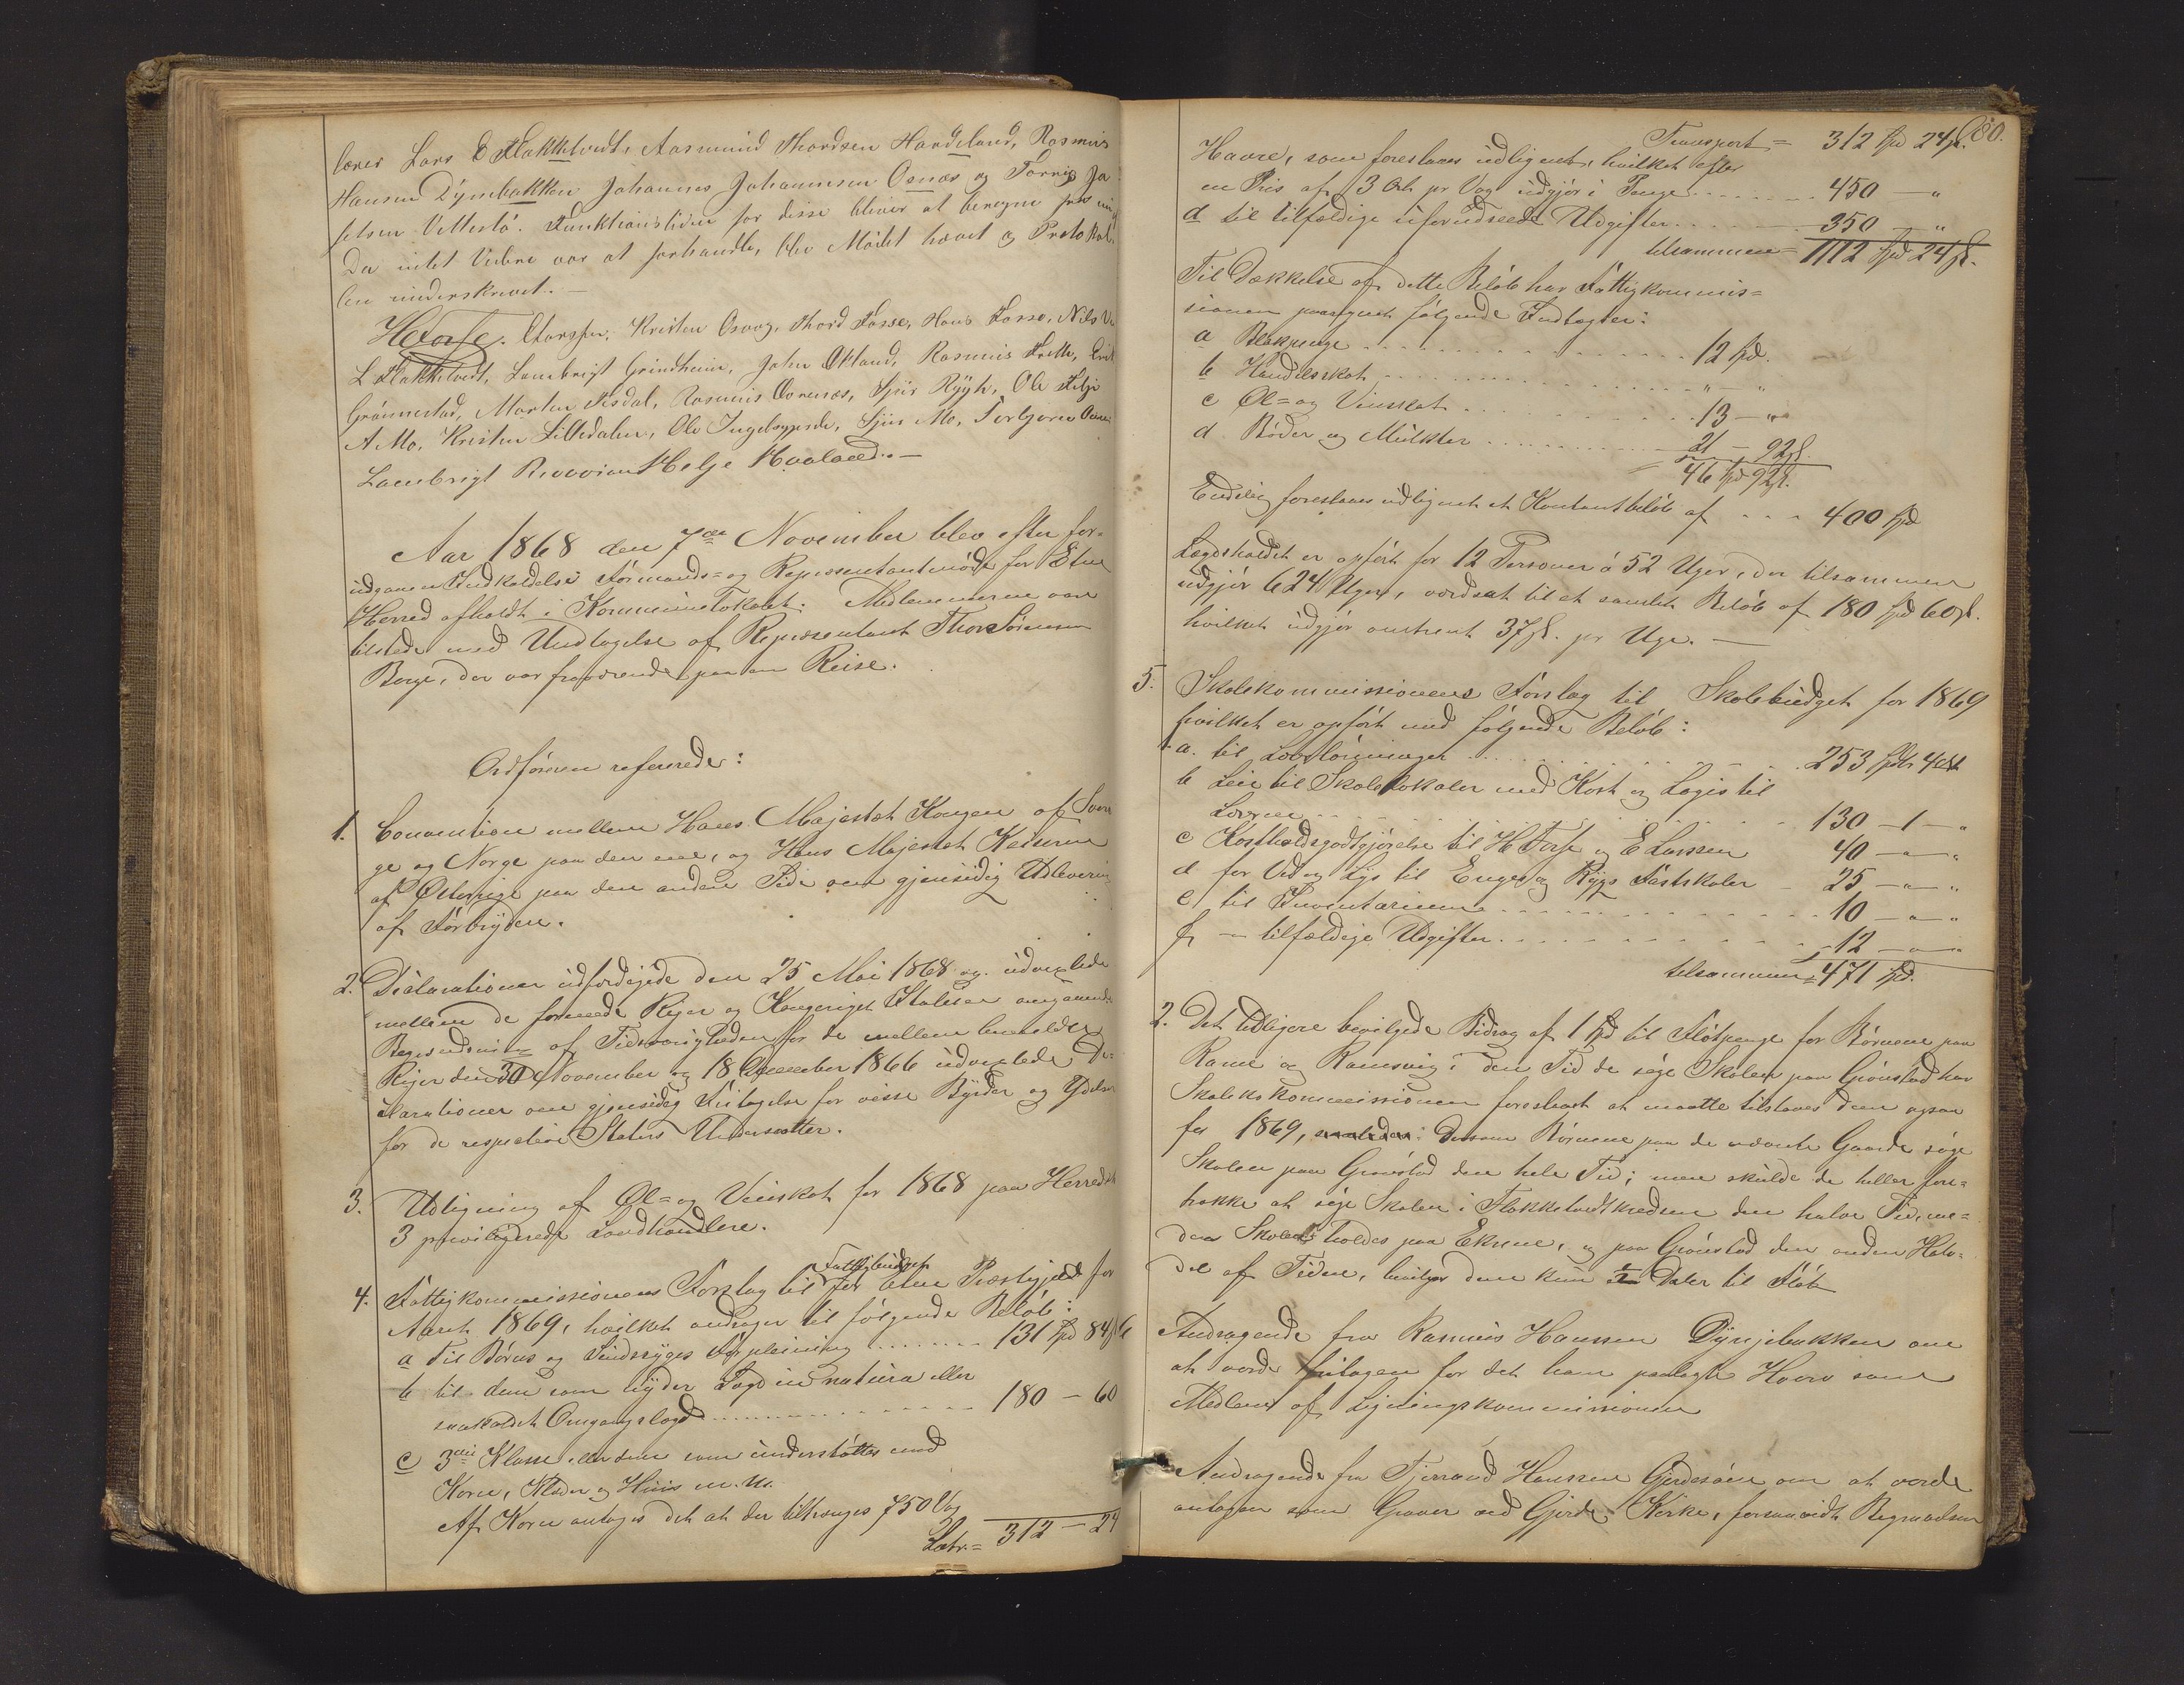 lærer Lars E Flakketvedt, Aasmund Thordsen Handeland, Rasmus
Hansen Dynjebakken Johannes Johannesen Osnæs og Torris Ja-
kobsen Vettestø. Funktionstiden for disse bliver at beregne fra
Da intet Videre var at forhandle, blev Mødet hævet og Protokol-
len underskrevet. —
H Torse. Thorsen, Kristen Osvog, Thord Fosse, Hans Fosse, Nils
L Flakketvedt, Lambregt Grindheim, John Øtland, Rasmus Frette, Erik
Grønnestad, Morten Aasdal, Rasmus Osnæs, Sjur Rygh, Ole Silje
A Mo, Kristen Litledalen, Ole Ingebregtsen, Sjur Mo, Torbjørn Osnæs
Lambregt Helje Haaland. —
Aar 1868 den 7de November blev efter for-
udgaaen Indkaldelse Formands- og Repræsentantmøde for Etne
Herred afholdt i Kommunelokalet. Medlemmerne vare
tilstede med Undtagelse af Repræsentant Thor Sørensen
Berge, der var fraværende paa en Reise.
Ordføreren refererede:
1. Convention mellem Hans Majestæt Kongen af Sveri-
ge og Norge paa den ene, og Hans Majestæt Keiseren
af Østerrige paa den anden Side om gjensidig Udlevering
af Forbrydere.
2. Declarationer udfærdigede den 25 Mai 1868 og udvexlede
mellem de forenede Riger og Kongeriget Italien angaaende
Begrændsning af Tidsvarigheden for de mellem bemeldte
Riger den 30 November og 18 December 1866 udvexlede De-
klarationer om gjensidig Fritagelse for visse Byrder og Ydelser
for de respective Staters Undersaatter.
3. Udligning af Øl- og Vinskat for 1868 paa Herredets
3 privilegerede Landhandlere.
4. Fattigkommissionens Forslag til Fattigbudget for Etne Præstegjeld for
Aaret 1869, hvilket andrager til følgende Beløb:
a Til Børns og Sindssyges Forpleining . . . . . . . 131 Spd 84 ß
b til dem som nyder Lægd in natura eller
saakaldet Omgangslægd . . . . . . . . . . . . 180 — 60
c 3die Klasse eller dem som understøttes med
Korn, Klæder og Huus m.m.
Af Korn antages det at der tiltrænges 750 Vog
Latr. = 312 — 24
80.
Transport = 312 Spd 24 ß.
Havre, som foreslaaes udlignet, hvilket efter
en Pris af 3 Ort pr Vog udgjør i Penge . . . . . . . 450 — "
d til tilfældige uforudseede Udgifter . . . . . . . 350 — "
tilsammen = 1112 Spd 24 ß.
Til Dækkelse af dette Beløb har Fattigkommis-
sionen paaregnet følgende Indtægter:
a Blækpenge . . . . . . . . . . . . . . . 12 Spd.
b Handelsskat . . . . . . . . . . . . . . " — "
c Øl- og Vinskat . . . . . . . . . . . . 13 — "
d. Bøder og Mulkter . . . . . . . . . . . 21 — 92 ß.
= 46 Spd 92 ß.
Endelig foreslaaes udlignet et Kontantbeløb af . . . 400 Spd
Lægdsholdet er opført for 12 Personer á 52 Uger, der tilsammen
udgjør 624 Uger, værdsat til et samlet Beløb af 180 Spd 60 ß.
hvilket udgjør omtrent 37 ß. pr Uge. —
5. Skolekommissionens Forslag til Skolebudget for 1869
hvilket er opført med følgende Beløb:
a. til Lærlønninger . . . . . . . . . . . . . 253 Spdr 4 Ort
b Leie til Skolelokaler med Kost og Logis til
Lærerne . . . . . . . . . . . . . . . . 130 — 1 — "
c Kostholdsgodtgjørelse til H Torse og E Larssen 40 — " — "
d for Ved og Lys til Enge og Rygs Fastskoler — 25 — " — "
e til Inventarium . . . . . . . . . . . . . 10 — " — "
f — tilfældige Udgifter . . . . . . . . . . . 12 — " — "
tilsammen = 471 Spd.
2. Det tidligere bevilgede Bidrag af 1 Spd til Flotpenge for Børnene paa
Rame og Ramsvig i den Tid de søge Skolen paa Grønstad har
Skolekommissionen foreslaaet at maatte tilstaaes dem ogsaa
for 1869, saaledes: Dersom Børnene paa de nævnte Gaarde søge
Skolen paa Grønstad den hele Tid; men skulde de heller fore-
trække at søge Skolen i Flakketvedtkredsen den halve Tid, me-
dens Skolen holdes paa Ekrene, og paa Grønstad den anden Halv-
del af Tiden, bevilges dem kun ½ Daler til Fløt
Andragende fra Rasmus Hanssen Dynjebakken om
at vorde fritagen for det ham paalagte Hverv som
Medlem af Ligningskommissionen
Andragende fra Tjerand Hanssen Gjerdesøen om at vorde
antagen som Graver ved Gjerde Kirke, forsaavidt Begravelsen